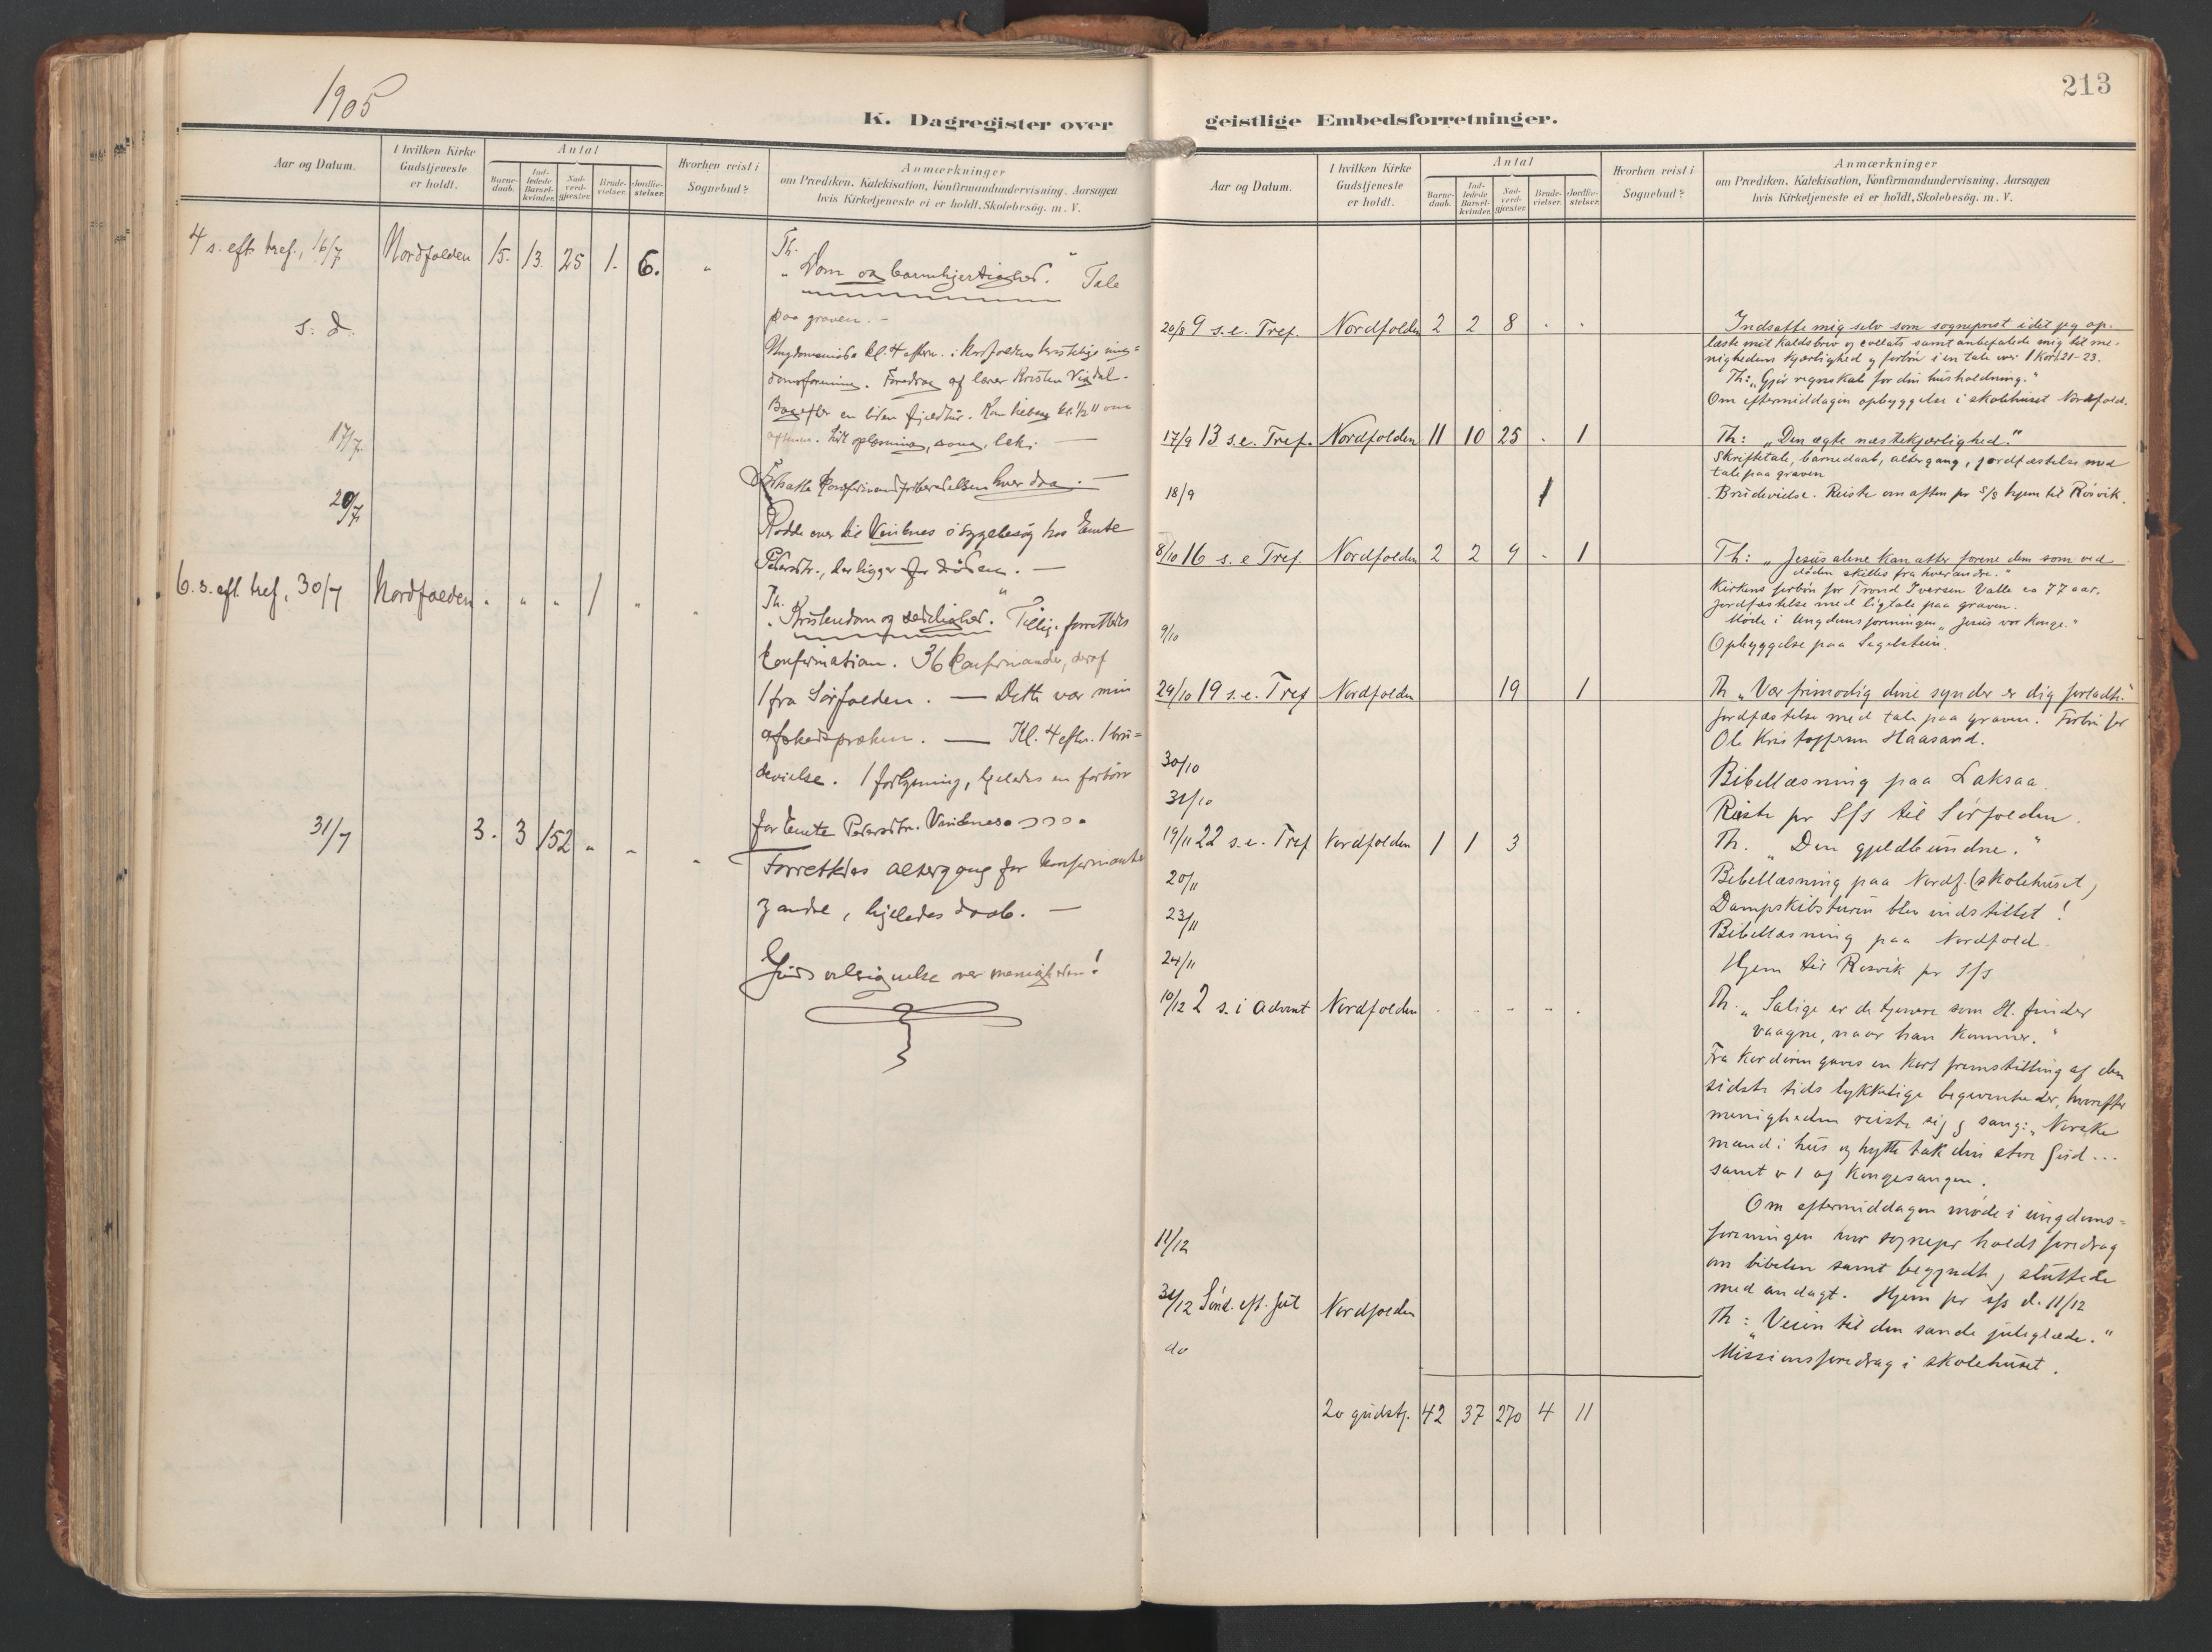 1905
K. Dagregister over
Aar og Datum.
I hvilken Kirke Gudstjeneste er holdt.
Antal
Barne-daab.
Ind-ledede Barsel-kvinder.
Nad-verd-gjæster.
Brude-vielser.
Jordfæ-stelser.
Hvorhen reist i Sognebud?
Anmærkninger
om Prædiken, Katekisation, Konfirmandundervisning, Aarsagen
hvis Kirketjeneste ei er holdt, Skolebesög. m. V.
4 s. eft. tref., 16/7 Nordfolden 15. 13. 25 1. 6. "
Th. "Dom og barmhjertighed." Tale
paa graven. -
s. d.
kl. 4 eftm. i Nordfoldens kristelige ung=
domsforening. Foredrag af lærer Kristen Vigdal.
en liden fjeldtur. kl. 1/2 11 om
aftenen. oplæsning, sang, lek. —
17/7
hver dag. —
20/7
Rodde over til Vinknes i sygebesög hos Emte
Pedersdtr., der ligger for döden. —
6. s. eft. tref, 30/7 Nordfolden " " " 1 " "
Th. "Kristendom og sædelighed." Tillige forrettedes
konfirmation. 36 konfirmander, deraf
1 fra Sörfolden. — Dette var min
afskedspræken. — Kl. 4 eftm. 1 bru=
devielse. 1 forlysning, ligeledes en forbön
for Emte Pedersdtr. Vinknes.
31/7 3. 3 152 " " "
Forrettedes altergang for konfirmanter
og andre, ligeledes daab. —
Guds velsignelse over menigheden!
213
geistlige Embedsforretninger.
Aar og Datum.
I hvilken Kirke Gudstjeneste er holdt.
Antal
Barne-daab.
Ind-ledede Barsel-kvinder.
Nad-verd-gjæster.
Brude-vielser.
Jordfæ-stelser.
Hvorhen reist i Sognebud?
Anmærkninger
om Prædiken, Katekisation, Konfirmandundervisning, Aarsagen
hvis Kirketjeneste ei er holdt, Skolebesög. m. V.
20/8 9 s. e. Tref. Nordfolden 2 2 8 . .
Indsatte mig selv som sogneprest idet jeg op-
læste mit kaldsbrev og collats samt anbefalede mig til me-
nighedens kjærlighed og forbön i en tale over 1 Kor. 1, 21-23.
Th: "Gjör regnskab for din husholdning."
Om eftermiddagen opbyggelse i skolehuset Nordfold.
17/9 13 s. e. Tref. Nordfolden 11 10 25 . 1
Th: "Den ægte næstekjærlighed."
Skriftetale, barnedaab, altergang, jordfæstelse med
tale paa graven
18/9 1
Brudevielse. Reiste om aften pr S/S hjem til Rösvik.
8/10 16 s. e Tref. Nordfolden 2 2 9 - 1
Th: "Jesus alene kan atter forene dem som ved
döden skilles fra hverandre."
Kirkens forbön for Trond Iversen Valle ca 77 aar.
Jordfæstelse med ligtale paa graven.
Möde i Ungdomsforeningen "Jesus vor Konge."
9/10
Opbyggelse paa Segelstein.
29/10 19 s. e. Tref Nordfolden 19 1
Th "Vær frimodig dine synder er dig forladte."
Jordfæstelse med tale paa graven. Forbön for
Ole Kristoffersen Haasand.
30/10
Bibellæsning paa Laksaa.
31/10
Reiste pr S/S til Sörfolden.
19/11 22 s. e. Tref Nordfolden 1 1 3
Th. "Den gjeldbundne."
20/11
Bibellæsning paa Nordf. (skolehuset)
23/11
Dampskibsturen blev indstillet!
Bibellæsning paa Nordfold.
24/11
Hjem til Rösvik pr S/S
10/12 2 s. i Advent Nordfolden . . - - .
Th. "Salige er de tjenere som H. finder
vaagne, naar han kommer."
Fra kordören gaves en kort fremstilling af den
sidste tids lykkelige begivenheder, hvorefter
menigheden reiste sig og sang: "Norske
mand i hus og hytte tak din store Gud...
samt v 1 af Kongesangen.
Om eftermiddagen möde i ungdoms=
foreningen hvor sognepr holdt foredrag
om bibelen samt begyndte og sluttede
med andagt. Hjem pr s/s d. 11/12
11/12
31/12 Sönd. eft. Jul Nordfolden
Th: "Veien til den sande juleglæde."
do
Missionsforedrag i skolehuset.
20 gudstj. 42 37 270 4 11